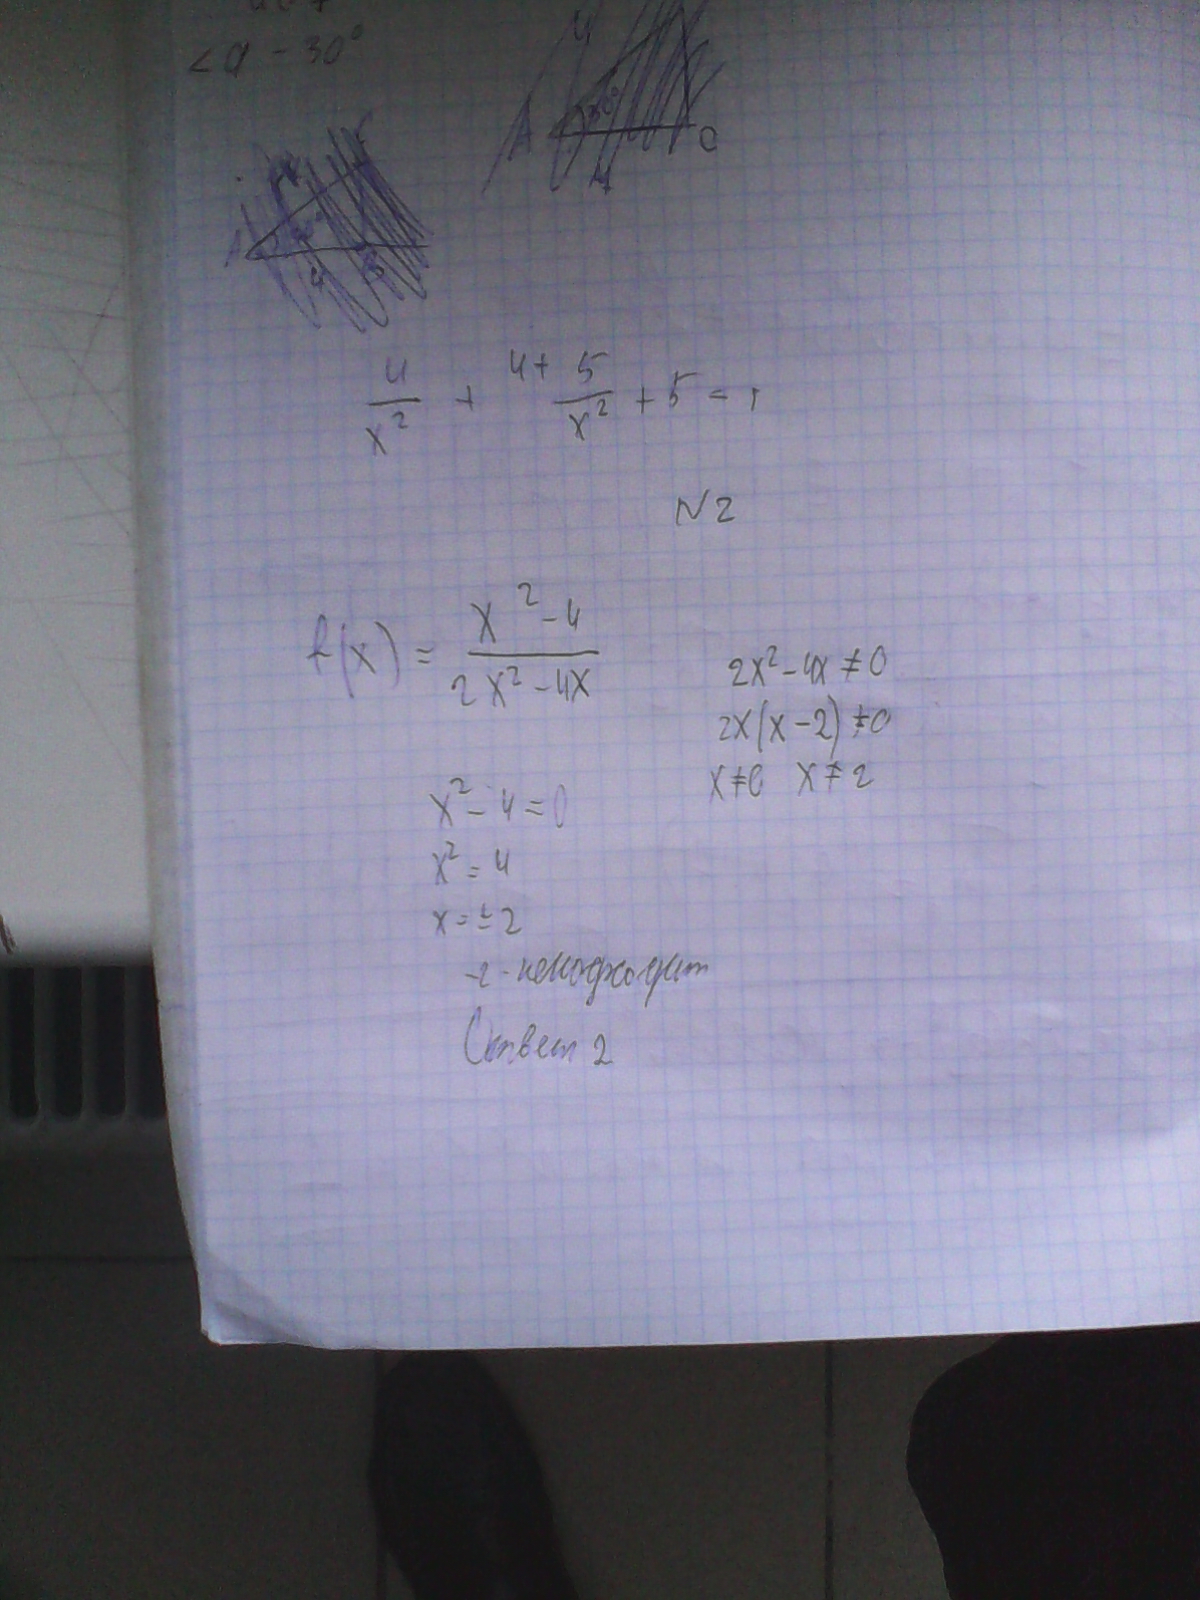 <a - 30°
A 30° C
4/x² + 4+ 5/x² + 5 =
N2
f(x) = x² - 4 / 2x² - 4x
2x² - 4x ≠ 0
2x(x - 2) ≠ 0
x ≠ 0 x ≠ 2
x² - 4 = 0
x² = 4
x = ± 2
-2 - неподходит
Ответ 2